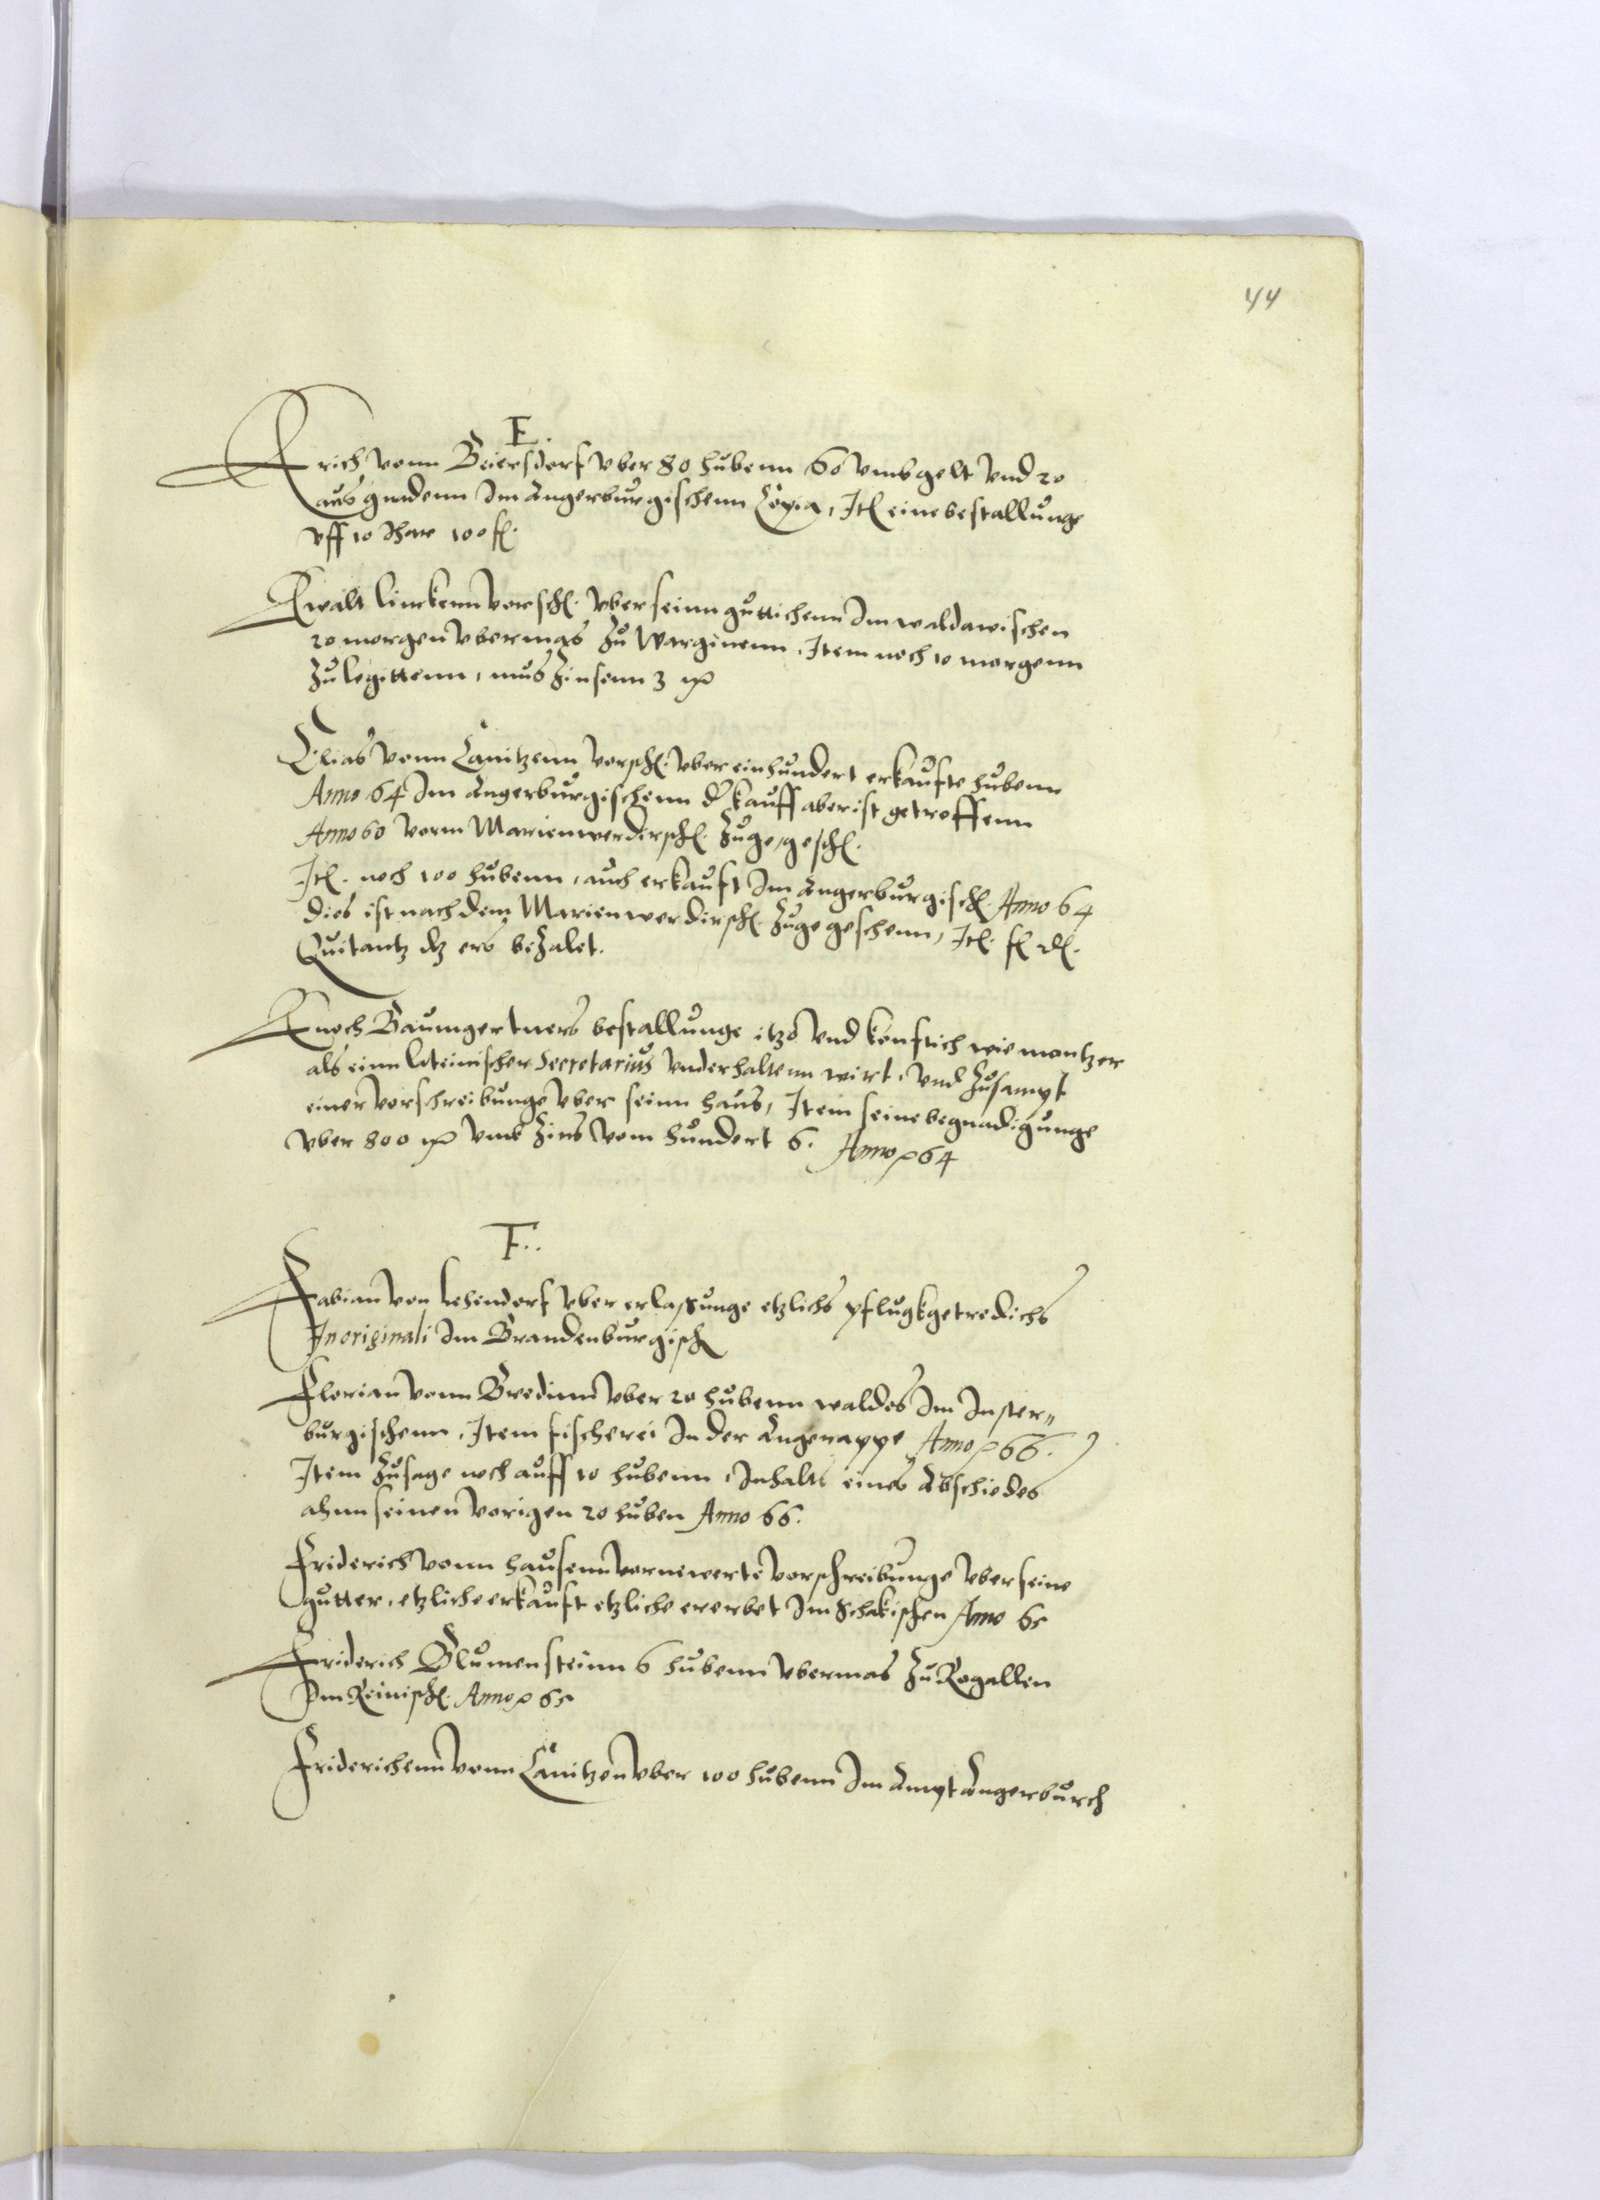 44
E.
Erich vonn Beiersdorf vber 80 hubenn 60 vmbgelt vnd 20
aus gnadenn Im Angerburgischenn Copia, Itl eine bestallunge
vff 10 Ihar 100 fl.
Ewalt linckenn vorschl. vber seinn guttichenn Im waldawischen
20 morgen vbermas zu Warginenn, Item noch 10 morgenn
zu legittenn, mus zinsenn 3 mr
Elias vonn Canitzenn vorschl. vber einhundert erkaufte hubenn
Anno 64 Im Angerburgischenn d kauff aber ist getroffenn
Anno 60 vorm Marienwerderschl. zuge, geschl.
Itl. noch 100 hubenn, auch erkauft Im Angerburgischl Anno 64
dies ist nach dem Marienwerdirschl. zuge geschenn, Itl. fl dl.
Quitantz dz ers bezalet.
Enoch Baumgertners bestallunge itzo vnd kenftich wie mentzer
als einn lateinischer Secretarius vnderhaltenn wirt, vnd zusampt
einer vorschreibunge vber seinn haus, Item seine begnadigunge
vber 800 mr vmb zins vom hundert 6. Anno 64
F.
Fabian von Lehendorf vber erlassunge etzlichs pflugkgetredichs
In originali Im Brandenburgisch
Florian vonn Bredinn vber 20 hubenn waldes Im Inster=
burgischenn, Item fischerei In der Angerappe Anno 66.
Item zusage noch auff 10 hubenn, Inhalts eines Abschiedes
ahnn seinen vorigen 20 huben Anno 66.
Friderich vonn hausenn vornewerte vorschreibunge vber seine
gutter, etzliche erkauft etzliche ererbet Im Schakischen Anno 65
Friderich Blumensteinn 6 hubenn vbermas zu Rogallen
Im Reinischl. Anno 65
Friderichenn vonn Canitzen vber 100 hubenn Im Ampt Angerburch